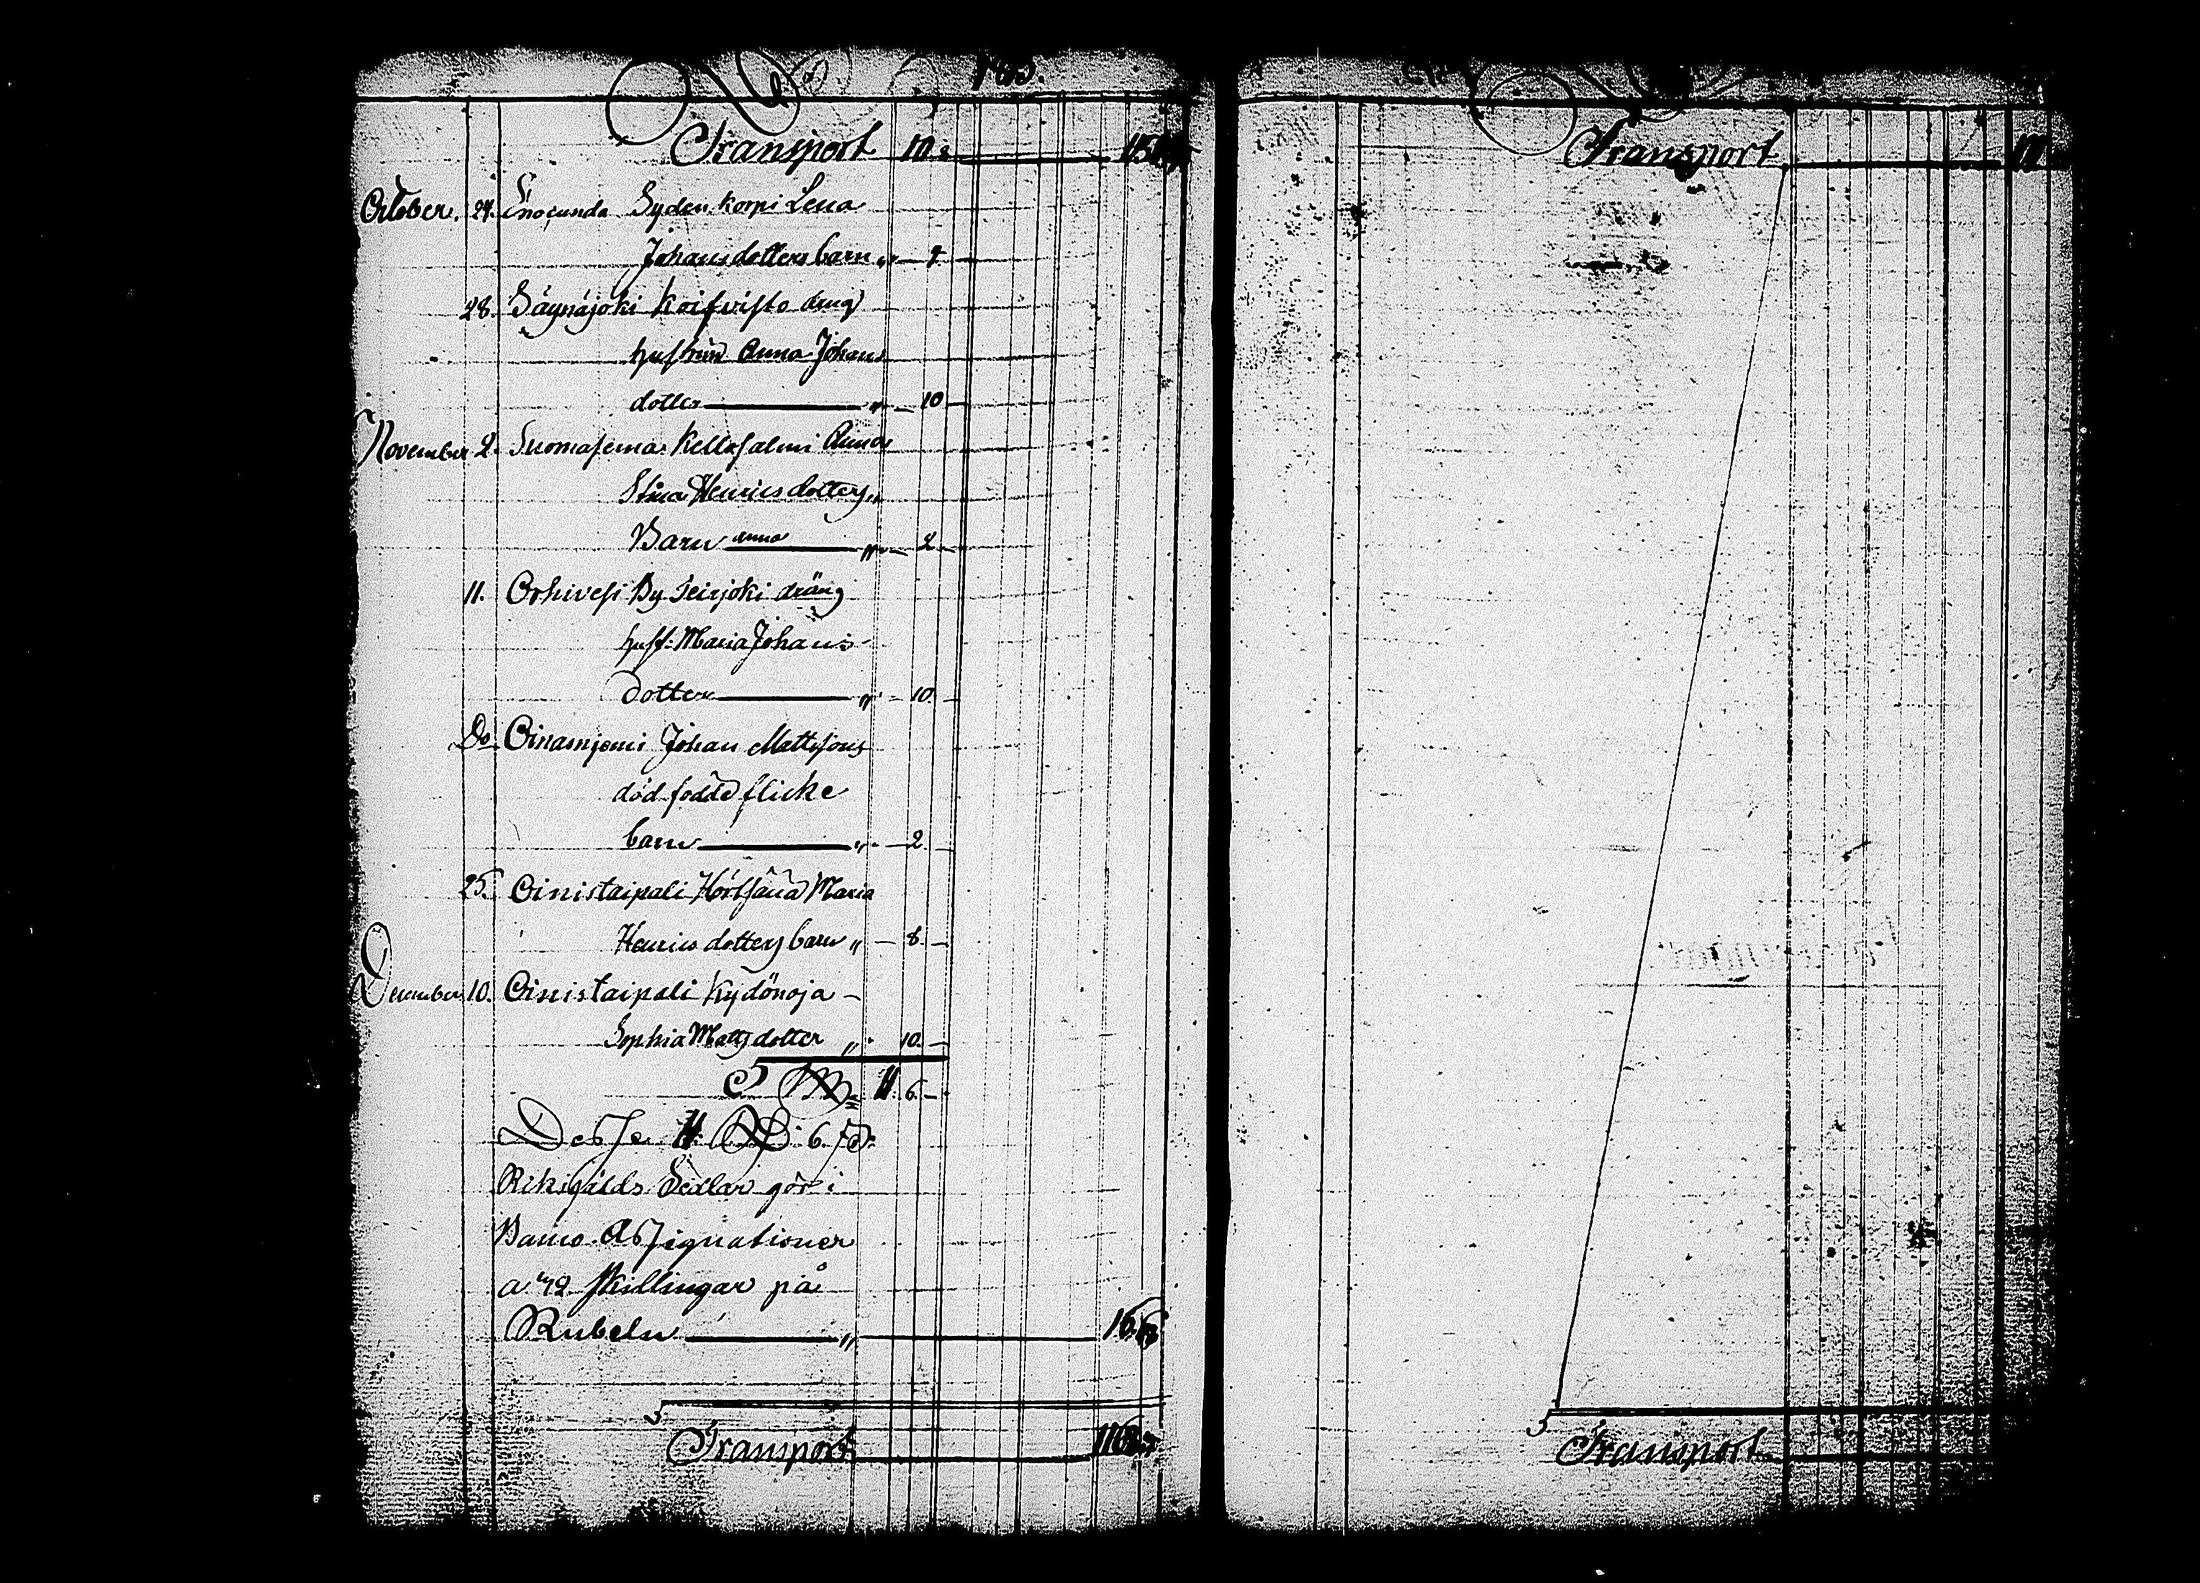 Transport 10.
October. 27. Enokunda Syden korpi Lena
Johansdotters barn „ — 4
28. Säynäjoki Koifvisto dräng
hustrun Anna Johans
dotter „ — 10
November 2. Suomasema Kellosalmi Anna
Stina Henricsdotters „
Barn Anna „ — 2
11. Orhivesi By Seirjoki dräng
hust: Maria Johans-
dotter „ — 10. —
Do. Oinasnjemi Johan Mattssons
död födde flicke
barn „ — 2. —
25. Oinistaipali Hörtsänä Maria
Henrics dotters barn „ — 8. —
December 10. Oinistaipali Kydönoja —
Sophia Matts dotter „ 10. —
S 11. 6. —
Desse 11 Rd: 6. s:
Riksgälds Sedlar gör i
Banco Assignationer
a 72 skillingar på
Rubeln „ 16
Transport
Transport
Transport